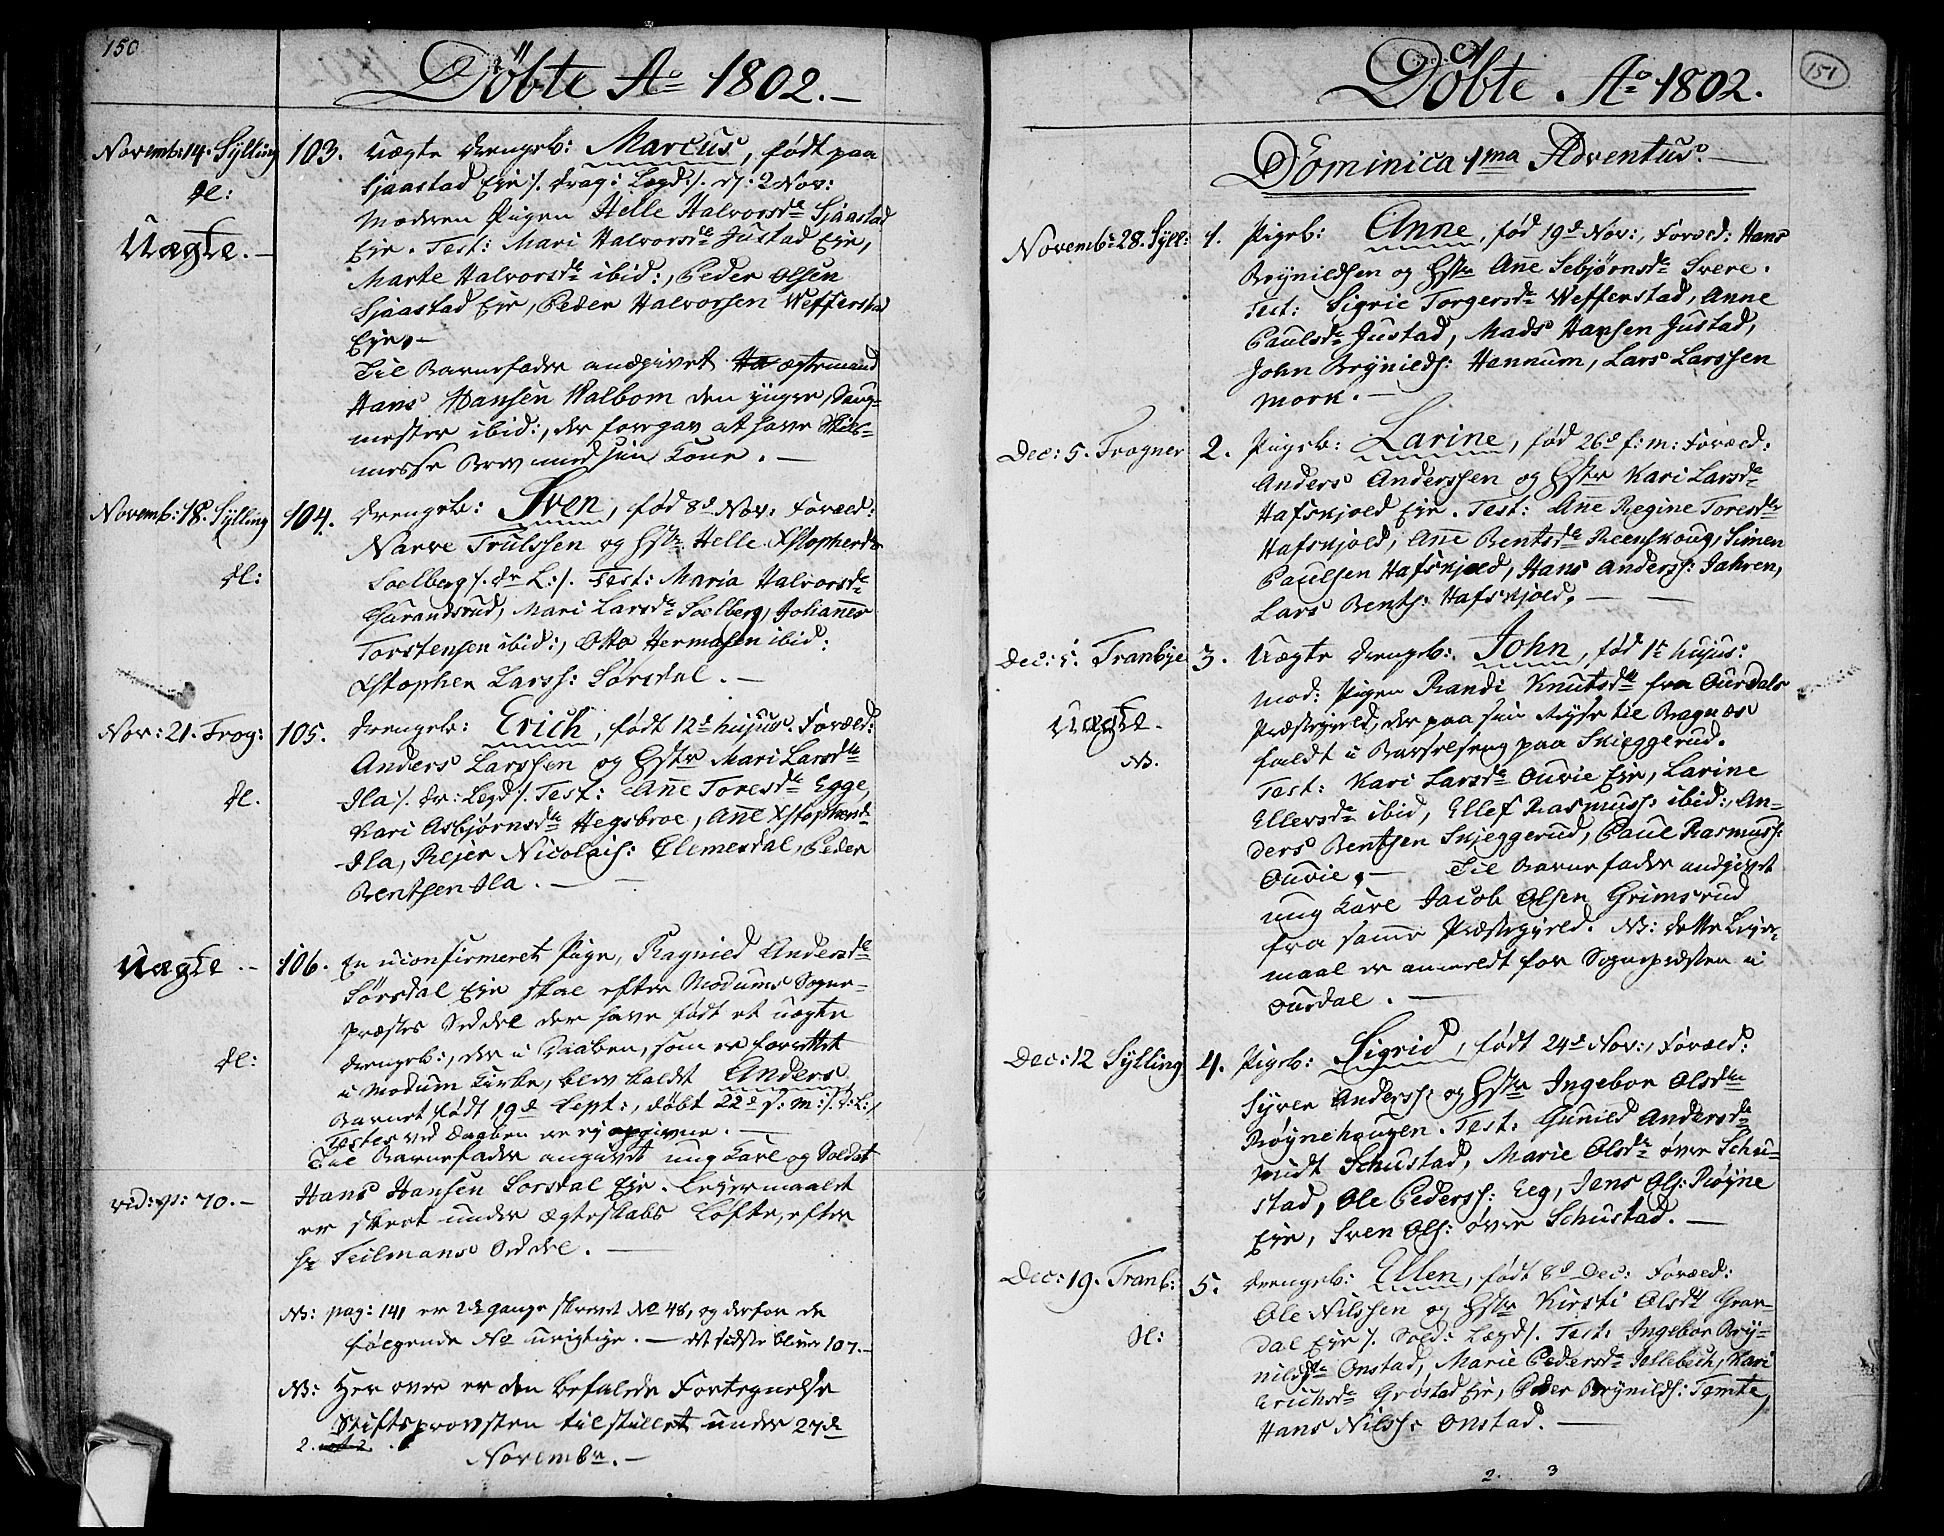 150
Döbte Ao 1802.—
Novemb: 14. Sylling
dl:
Uægte.—
103. Uægte drengeb: Marcus, født paa
Sjaastad Eje /. drag: Legd: /. d: 2 Nov:
Moderen Pigen Helle Halvorsdr Sjaastad
Eje. Test: Mari Halvorsdr Justad Eje,
Marte Halvorsdr ibid:, Peder Olsen
Sjaastad Eje, Peder Halvorsen Wefferstad
Eje.—
Til Barnefader andgivet Ha ægtemand
Hans Hansen Walbom den yngre, Saug-
mester ibid:, der foregav at have Skils-
messe Brev med sin Kone.—
Novemb: 18. Sylling
dl:
104. drengeb: Sven, fød 8d Nov: Foræld:
Narve Trulssen og Hstr Helle Xstophersdr
Soelberg /. dr L: /. Test: Maria Halvorsdr
Garandsrud, Mari Larsdr Soelberg, Johannes
Torstensen ibid:, Otto Hermansen ibid:
Xstopher Larss: Sørsdal.—
Nov: 21. Trog:
dl.
105. drengeb: Erich, født 12d hujus. Foræld:
Anders Larssen og Hstr Mari Larsdr
Ila /. dr: Legd /. Test: Anne Toresdr Egge,
Kari Asbjørnsdr Hegsbroe, Anne Xstophersdr
Ila, Rejer Nicolais: Clemesdal, Peder
Bentsen Ila.—
Uægte.—
dl:
vid: p: 70.—
106. En uconfirmeret Pige, Ragnild Andersdr
Sørsdal Eje skal efter Modums Sogne-
Præstes Seddel der have født et uægte
drengeb:, der i Daaben, som er forrettet
i Modum Kirke, blev kaldet Anders
Barnet født 19d Sept:, døbt 22d s: m: /. d: L: /.
Testes ved Daaben er ej opgivne.—
Til Barnefader angivet ung Karl og Soldat
Hans Hansen Sorsdal Eje. Lejermaalet
er skeet under Ægteskabs Løfte, efter
Hr Teilmans Seddel.—
NB: pag: 141 er 2de gange skrevet No 48, og derfor de
følgende No urigtige.— det sidste bliver 107.—
NB: Her over er den befalede Fortegnelse
Stiftsprovsten tilstillet under 27d
Novembr.—
Döbte. Ao 1802.
151
Dominica 1ma Adventus.—
Novemb: 28. Syll:
1. Pigeb: Anne, fød 19d Nov:, Foræld: Hans
Brynildsen og Hstr Anne Sebjørnsdr Svere.
Test: Sigrie Torgersdr Wefferstad, Anne
Paulsdr Justad, Mads Hansen Justad,
John Brynilds: Hannum, Lars Larssen
Mork.—
Dec: 5. Frogner
2. Pigeb: Larine, fød 26d f: m: Foræld:
Anders Anderssen og Hstr Kari Larsdr
Hafskjold Eje. Test: Anne Regine Toresdr
Hafskjold, Anne Bentsdr Reenskoug, Simen
Paulsen Hafskjold, Hans Anderss: Jahren,
Lars Bents: Hafskjold.—
Dec: 5. Tranbye
Uægte.
NB.
3. Uægte drengeb: John, fød 1e hujus:
Mod: Pigen Randi Knutsdr fra Ourdals
Præstegjeld, der paa sin Rejse til Bragnæs
faldt i Barselseng paa Skjeggerud.
Test: Kari Larsdr Ouvie Eje, Larine
Ellersdr ibid, Ellef Rasmuss: ibid:, An-
ders Bentsen Skjeggerud, Paul Rasmuss:
Ouvie.— Til Barnefader andgivet
ung Karl Jacob Olsen Grimsrud
fra samme Præstegjeld. NB: dette Lejer-
maal er anmeldt for Sognepræsten i
Ourdal.—
Dec: 12 Sylling
4. Pigeb: Sigrid, født 24d Nov:, Foræld:
Syver Anderss: og Hstr Ingebor Olsdr
Røynehougen. Test: Gunild Andersdr
midt Schustad, Marie Olsdr øvre Schu-
stad, Ole Pederss: Eeg, Jens Ols: Røyne
Eje, Sven Ols: øvre Schustad.—
Dec: 19. Tranb:
dl:
5. drengeb: Ellen, født 8d Dec: Foræld:
Ole Nilssen og Hstr Kirsti Olsdr Grav-
dal Eje /. Sold: Legd /. Test: Ingebor Bry-
nildsdr Onstad, Marie Pedersdr Jellebech, Kari
Erichsdr Gröstad Eje, Peder Brynilds: Tømte,
Hans Nilss: Onstad.—
2. 3